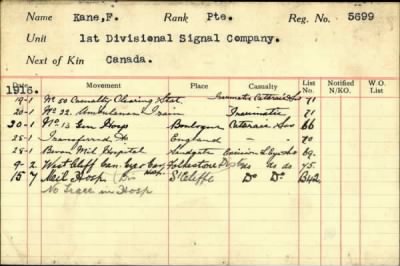 Name Kane, F. Rank Pte. Reg. No. 5699
Unit 1st Divisional Signal Company.
Next of Kin Canada.
Date Movement Place Casualty List No. Notified N/KO. W.O. List
1916.
19-1 No 50 Casualty Clearing Stat Traumatic Cataract 71
20-1 No 22 Ambulance Train Traumatic 71
20-1 No 13 Gen Hosp Boulogne Cataract 66
25-1 Transferred to England - 70
25-1 Mil Hospital Eye 69.
9-2 West Cliff Can. Eye & Ear Hosp Folkestone Do do do 75.
15-7 Mil Hosp S'Cliffe Do Do B42
No Trace in Hosp